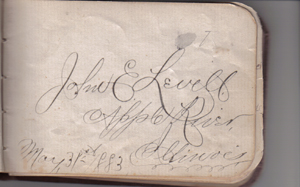 John E Levell
Apple River
Illinois
May 31st 1883